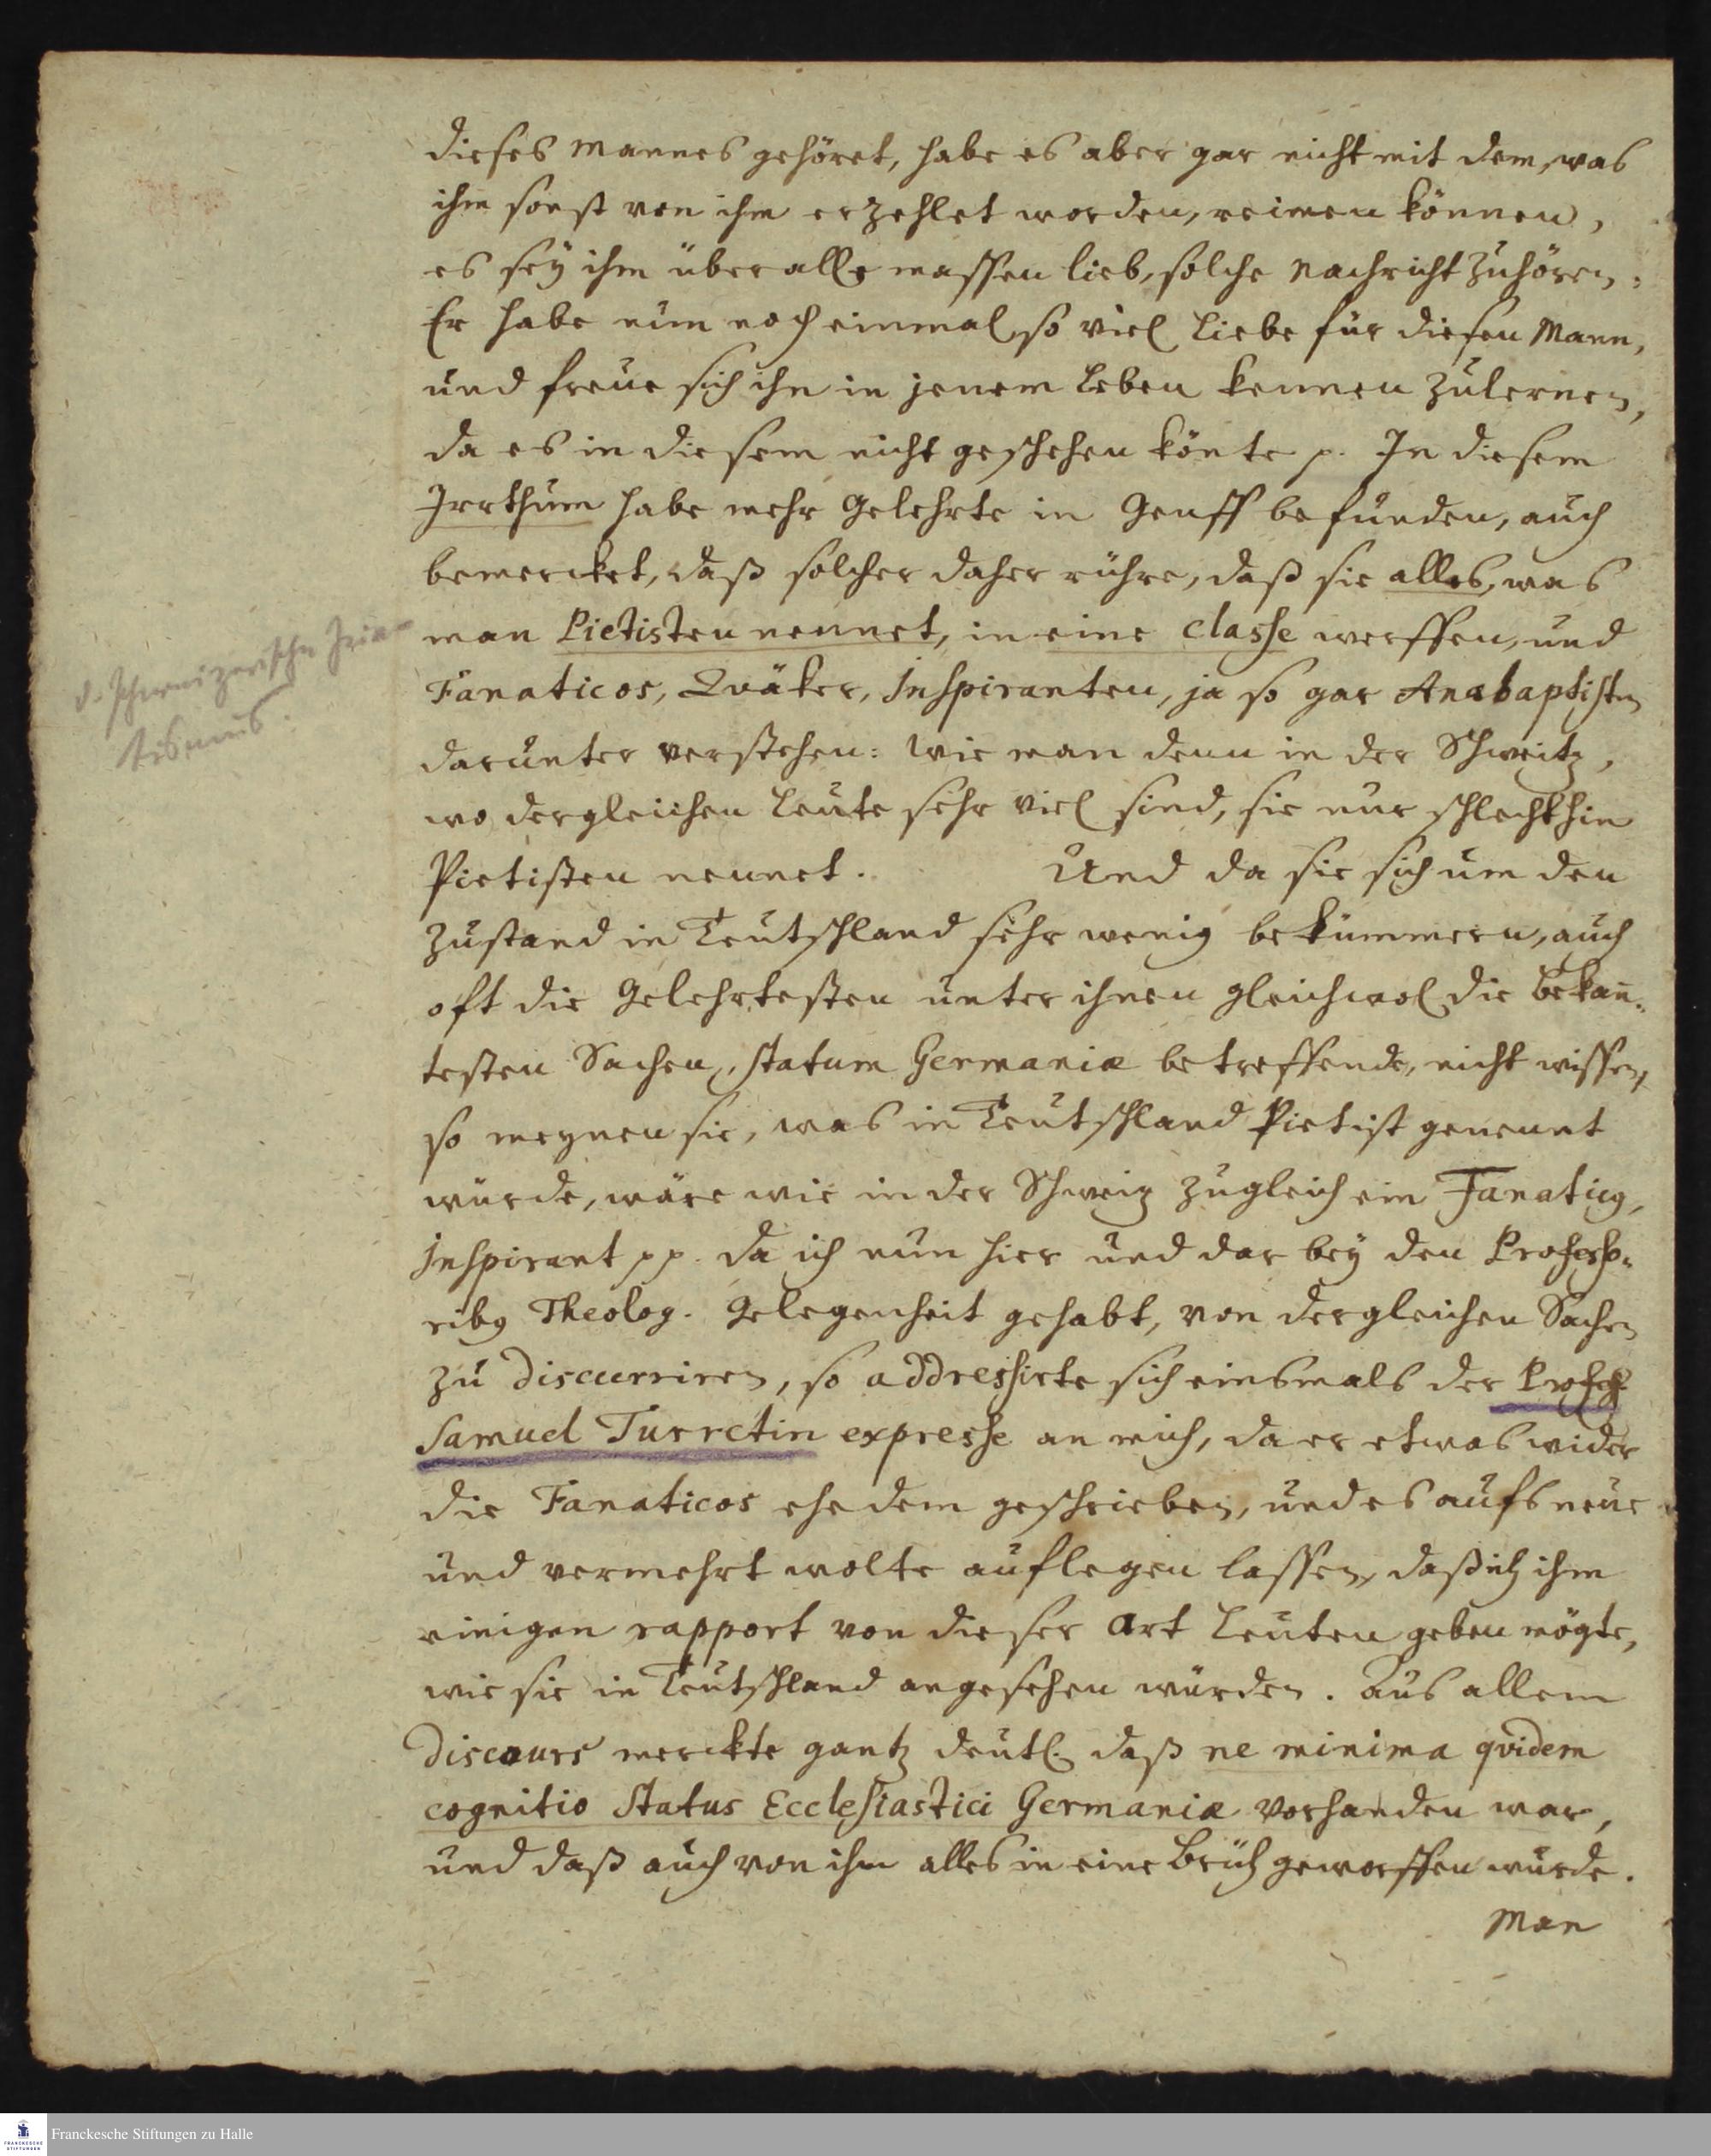 dieses Mannes gehöret, habe es aber gar nicht mit dem, was
ihm sonst von ihm erzehlet worden, reimen können,
es sey ihm über alle massen lieb, solche Nachricht zuhören.
Er habe nun noch einmal so viel Liebe für diesen Mann,
und freue sich ihn in jenem Leben kennen zulernen,
da es in diesem nicht geschehen könte p. In diesem
Irrthum habe mehr Gelehrte in Genff befunden, auch
bemercket, daß solcher daher rühre, daß sie alles, was
man Pietisten nennet, in eine classe werffen, und
Fanaticos, Qväker, Inspiranten, ja so gar Anabaptisten
darunter verstehen: wie man denn in der Schweitz,
wo dergleichen Leute sehr viel sind, sie nur schlechthin
Pietisten nennet. Und da sie sich um den
Zustand in Teutschland sehr wenig bekümmern, auch
oft die Gelehrtesten unter ihnen gleichwol die bekan̄-
testen Sachen, statum Germaniæ betreffende, nicht wissen,
so meynen sie, was in Teutschland Pietist genennt
würde, wäre wie in der Schweiz zugleich ein Fanaticus,
Inspirant pp. Da ich nun hier und dar bey den Professo-
ribus Theolog. Gelegenheit gehabt, von dergleichen Sachen
zu discurriren, so addressirte sich einsmals der Profess.
Samuel Turretin expresse an mich, da er etwas wider
die Fanaticos ehedem geschrieben, und es aufs neue
und vermehrt wolte auflegen lassen, daß ich ihm
einigen rapport von dieser Art Leuten geben mögte,
wie sie in Teutschland angesehen würden. Aus allem
Discours merckte gantz deutl. daß ne minima qvidem
cognitio Status Ecclesiastici Germaniæ vorhanden war,
und daß auch von ihm alles in eine Brüh geworffen wurde.
Man
d. schweizerische
Franckesche Stiftungen zu Halle